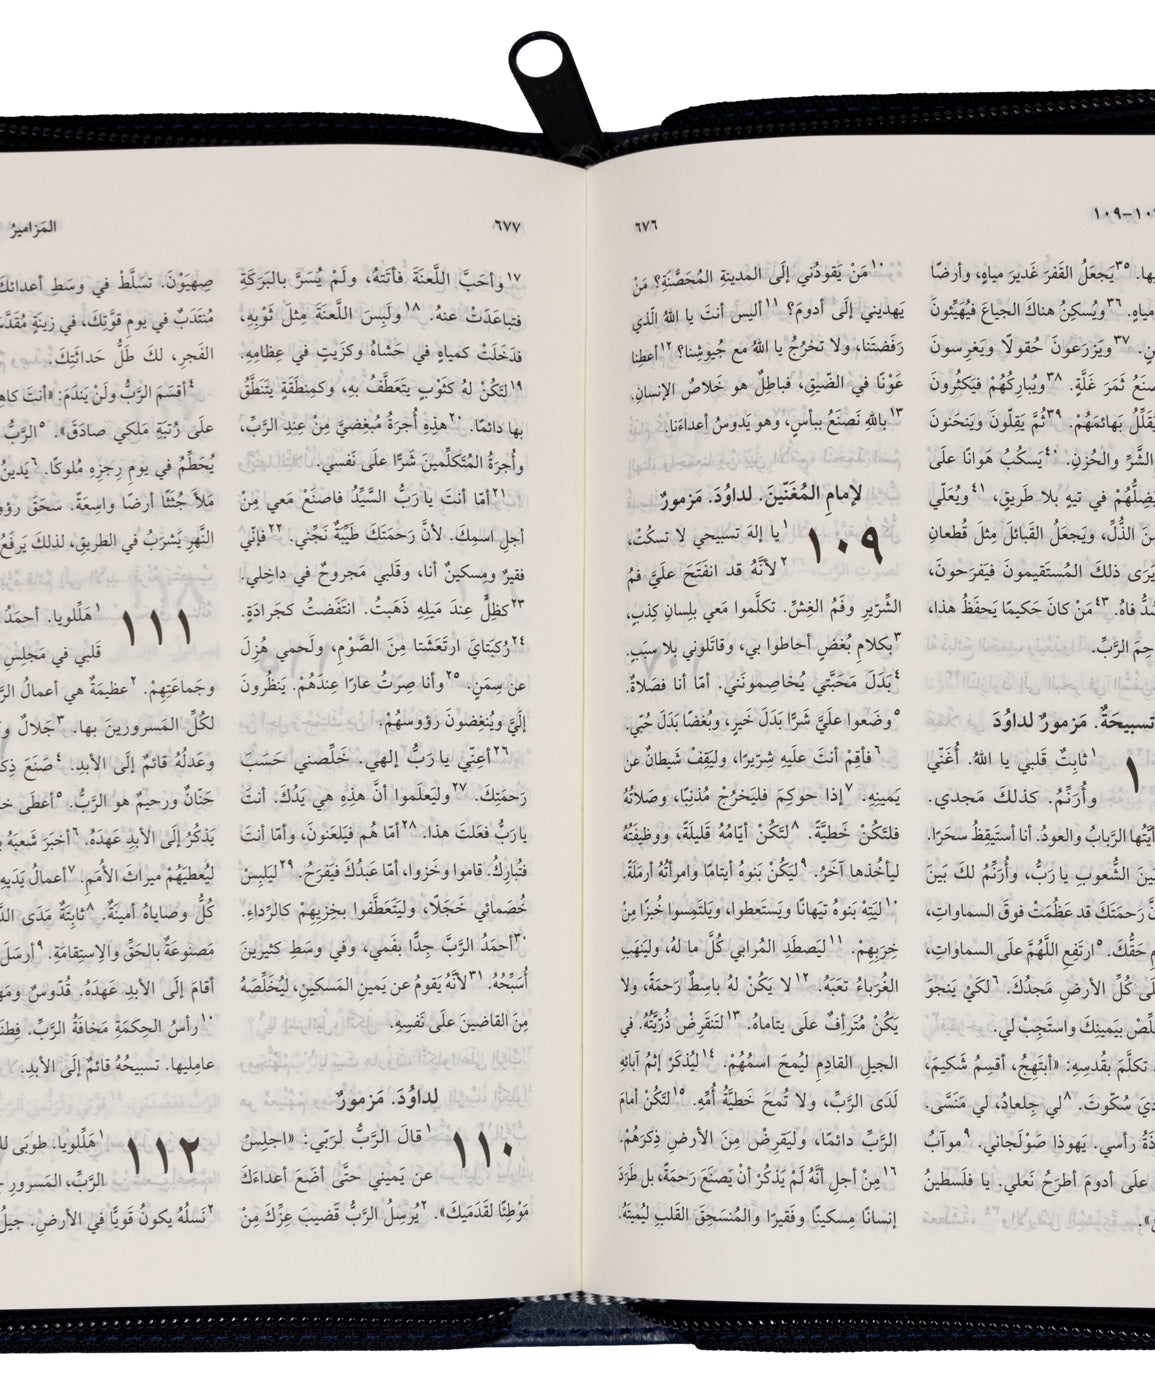 ١٠٩-
٣٥يَجعَلُ القَفرَ غَديرَ مياهٍ، وأرضًا
مياهٍ. ٣٦ويُسكِنُ هناكَ الجياعَ فيُهَيِّئونَ
٣٧ويَزرَعونَ حُقولًا ويَغرِسونَ
ثَمَرَ غَلَّةٍ. ٣٨ويُبارِكُهُمْ فيَكثُرونَ
يُقَلِّلُ بَهائمَهُمْ. ٣٩ثُمَّ يَقِلّونَ ويَنحَنونَ
الشَّرِّ والحُزنِ. ٤٠يَسكُبُ هَوانًا علَى
ويُضِلُّهُمْ في تيهٍ بلا طَريقٍ، ٤١ويُعَلّي
الذُّلِّ، ويَجعَلُ القَبائلَ مِثلَ قُطعانِ
يَرَى ذلكَ المُستَقيمونَ فيَفرَحونَ،
فاهُ. ٤٣مَنْ كانَ حَكيمًا يَحفَظُ هذا،
الرَّبِّ.
تسبيحَةٌ. مَزمورٌ لداوُدَ
١ثابِتٌ قَلبي يا اللهُ. أُغَنّي
وأُرَنِّمُ. كذلكَ مَجدي.
أيَّتُها الرَّبابُ والعودُ. أنا أستَيقِظُ سحَرًا.
بَينَ الشُّعوبِ يا رَبُّ، وأُرَنِّمُ لكَ بَينَ
رَحمَتَكَ قد عَظُمَتْ فوقَ السماواتِ،
حَقُّكَ. ٥ارتَفِعِ اللَّهُمَّ علَى السماواتِ،
كُلِّ الأرضِ مَجدُكَ. ٦لكَيْ يَنجوَ
خَلِّصْ بيَمينِكَ واستَجِبْ لي.
تكلَّمَ بقُدسِهِ: «أبتَهِجُ، أقسِمُ شَكيمَ،
سُكّوتَ. ٨لي جِلعادُ، لي مَنَسَّى.
رأسي. يَهوذا صَوْلَجاني. ٩موآبُ
علَى أدومَ أطرَحُ نَعلي. يا فلَسطينُ
٦٧٦
١٠مَنْ يَقودُني إلَى المدينةِ المُحَصَّنَةِ؟ مَنْ
يَهديني إلَى أدومَ؟ ١١أليس أنتَ يا اللهُ الّذي
رَفَضتَنا، ولا تخرُجُ يا اللهُ مع جُيوشِنا؟ ١٢أعطِنا
عَوْنًا في الضّيقِ، فباطِلٌ هو خَلاصُ الإنسانِ.
١٣باللهِ نَصنَعُ ببأسٍ، وهو يَدوسُ أعداءَنا.
لإمامِ المُغَنّينَ. لداوُدَ. مَزمورٌ
١٠٩ ١يا إلهَ تسبيحي لا تسكُتْ،
٢لأنَّهُ قد انفَتَحَ علَيَّ فمُ
الشِّرّيرِ وفَمُ الغِشِّ. تكلَّموا مَعي بلِسانِ كِذبٍ،
٣بكلامِ بُغضٍ أحاطوا بي، وقاتَلوني بلا سبَبٍ.
٤بَدَلَ مَحَبَّتي يُخاصِمونَني. أمّا أنا فصَلاةٌ.
٥وضَعوا علَيَّ شَرًّا بَدَلَ خَيرٍ، وبُغضًا بَدَلَ حُبّي.
٦فأقِمْ أنتَ علَيهِ شِرّيرًا، وليَقِفْ شَيطانٌ عن
يَمينِهِ. ٧إذا حوكِمَ فليَخرُجْ مُذنِبًا، وصَلاتُهُ
فلتَكُنْ خَطيَّةً. ٨لتَكُنْ أيّامُهُ قَليلَةً، ووظيفَتُهُ
ليأخُذها آخَرُ. ٩ليَكُنْ بَنوهُ أيتامًا وامرأتُهُ أرمَلَةً.
١٠ليَتِهْ بَنوهُ تيَهانًا ويَستَعطوا، ويَلتَمِسوا خُبزًا مِنْ
خِرَبِهِمْ. ١١ليَصطَدِ المُرابي كُلَّ ما لهُ، وليَنهَبِ
الغُرَباءُ تعَبَهُ. ١٢لا يَكُنْ لهُ باسِطٌ رَحمَةً، ولا
يَكُنْ مُتَرأِّفٌ علَى يتاماهُ. ١٣لتَنقَرِضْ ذُرّيَّتُهُ. في
الجيلِ القادِمِ ليُمحَ اسمُهُمْ. ١٤ليُذكَرْ إثمُ آبائهِ
لَدَى الرَّبِّ، ولا تُمحَ خَطيَّةُ أُمِّهِ. ١٥لتَكُنْ أمامَ
الرَّبِّ دائمًا، وليَقرِضْ مِنَ الأرضِ ذِكرَهُمْ.
١٦مِنْ أجلِ أنَّهُ لَمْ يَذكُرْ أنْ يَصنَعَ رَحمَةً، بل طَرَدَ
إنسانًا مِسكينًا وفَقيرًا والمُنسَحِقَ القَلبِ ليُميتَهُ.
٦٧٧
١٧وأحَبَّ اللَّعنَةَ فأتَتهُ، ولَمْ يُسَرَّ بالبَرَكَةِ
فتباعَدَتْ عنهُ. ١٨ولَبِسَ اللَّعنَةَ مِثلَ ثَوْبِهِ،
فدَخَلَتْ كمياهٍ في حَشاهُ وكزَيتٍ في عِظامِهِ.
١٩لتَكُنْ لهُ كثَوْبٍ يتَعَطَّفُ بهِ، وكمِنطَقَةٍ يتَنَطَّقُ
بها دائمًا. ٢٠هذِهِ أُجرَةُ مُبغِضيَّ مِنْ عِندِ الرَّبِّ،
وأُجرَةُ المُتَكلِّمينَ شَرًّا علَى نَفسي.
٢١أمّا أنتَ يا رَبُّ السَّيِّدُ فاصنَعْ مَعي مِنْ
أجلِ اسمِكَ. لأنَّ رَحمَتَكَ طَيِّبَةٌ نَجِّني. ٢٢فإنّي
فقيرٌ ومِسكينٌ أنا، وقَلبي مَجروحٌ في داخِلي.
٢٣كظِلٍّ عِندَ مَيلِهِ ذَهَبتُ. انتَفَضتُ كجَرادَةٍ.
٢٤رُكبَتايَ ارتَعَشَتا مِنَ الصَّوْمِ، ولَحمي هُزِلَ
عن سِمَنٍ. ٢٥وأنا صِرتُ عارًا عِندَهُمْ. يَنظُرونَ
إلَيَّ ويُنغِضونَ رؤوسَهُمْ.
٢٦أعِنّي يا رَبُّ إلهي. خَلِّصني حَسَبَ
رَحمَتِكَ. ٢٧وليَعلَموا أنَّ هذِهِ هي يَدُكَ. أنتَ
يا رَبُّ فعَلتَ هذا. ٢٨أمّا هُم فيَلعَنونَ، وأمّا أنتَ
فتُبارِكُ. قاموا وخَزوا، أمّا عَبدُكَ فيَفرَحُ. ٢٩ليَلبِسْ
خُصَمائي خَجَلًا، وليَتَعَطَّفوا بخِزيِهِمْ كالرِّداءِ.
٣٠أحمَدُ الرَّبَّ جِدًّا بفَمي، وفي وسَطِ كثيرينَ
أُسَبِّحُهُ. ٣١لأنَّهُ يَقومُ عن يَمينِ المَسكينِ، ليُخَلِّصَهُ
مِنَ القاضينَ علَى نَفسِهِ.
لداوُدَ. مَزمورٌ
١١٠ ١قالَ الرَّبُّ لرَبّي: «اجلِسْ
عن يَميني حتَّى أضَعَ أعداءَكَ
مَوْطِئًا لقَدَمَيكَ». ٢يُرسِلُ الرَّبُّ قَضيبَ عِزِّكَ مِنْ
المَزاميرُ
صِهيَوْنَ. تسَلَّطْ في وسَطِ أعدائكَ
مُنتَدَبٌ في يومِ قوَّتِكَ، في زينَةٍ
الفَجرِ، لكَ طَلُّ حَداثَتِكَ.
٤أقسَمَ الرَّبُّ ولَنْ يَندَمَ: «أنتَ
علَى رُتبَةِ مَلكي صادَقَ». ٥الرَّبُّ
يُحَطِّمُ في يومِ رِجزِهِ مُلوكًا. ٦يَدينُ
مَلأَ جُثَثًا أرضًا واسِعَةً. سحَقَ
النَّهرِ يَشرَبُ في الطريقِ، لذلكَ يَرفَعُ
١١١ ١هَلِّلويا. أحمَدُ
قَلبي في مَجلِسِ
وجَماعَتِهِمْ. ٢عظيمَةٌ هي أعمالُ
لكُلِّ المَسرورينَ بها. ٣جَلالٌ
وعَدلُهُ قائمٌ إلَى الأبدِ. ٤صَنَعَ
حَنّانٌ ورحيمٌ هو الرَّبُّ. ٥أعطَى
يَذكُرُ إلَى الأبدِ عَهدَهُ. ٦أخبَرَ شَعبَهُ
ليُعطيَهُمْ ميراثَ الأُمَمِ. ٧أعمالُ يَدَيهِ
كُلُّ وصاياهُ أمينَةٌ. ٨ثابِتَةٌ مَدَى
مَصنوعَةٌ بالحَقِّ والِاستِقامَةِ. ٩أرسَلَ
أقامَ إلَى الأبدِ عَهدَهُ. قُدّوسٌ
١٠رأسُ الحِكمَةِ مَخافَةُ الرَّبِّ.
عامِليها. تسبيحُهُ قائمٌ إلَى الأبدِ.
١١٢ ١هَلِّلويا. طوبَى
الرَّبَّ، المَسرورِ
٢نَسلُهُ يكونُ قَويًّا في الأرضِ. جيلُ